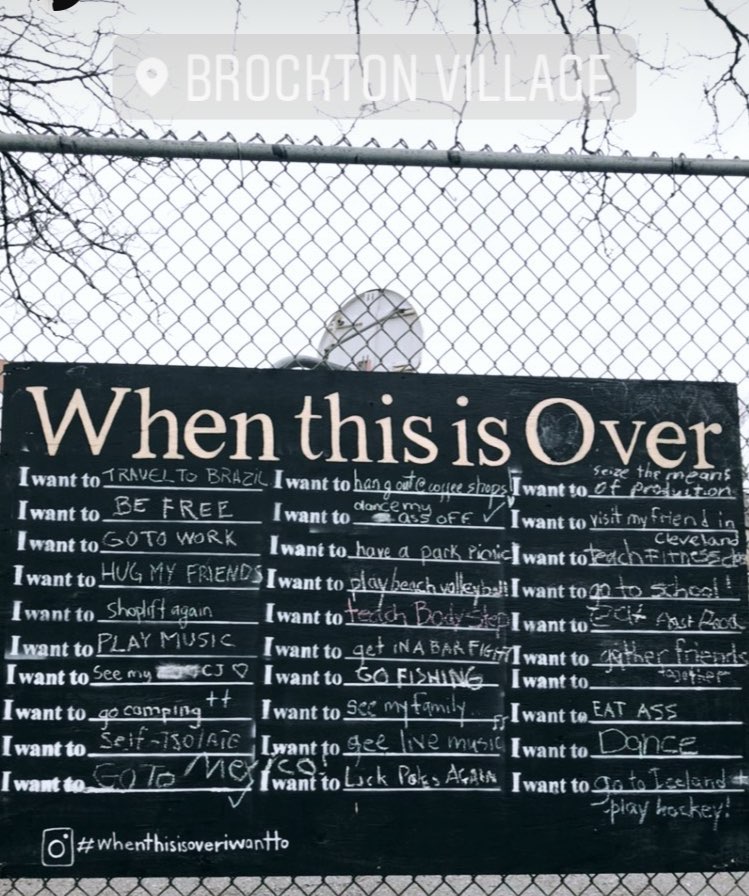 BROCKTON VILLAGE
When this is Over
I want to TRAVEL TO BRAZIL
I want to BE FREE
I want to GO TO WORK
I want to HUG MY FRIENDS
I want to Shoplift again
I want to PLAY MUSIC
I want to See my CJ ♡
I want to go camping ++
I want to Self-ISOlATE
I want to GO TO MexICO!
I want to hang out @ coffee shops
I want to dance my ass OFF ✓
I want to have a park picnic
I want to play beach volleyball
I want to teach Body Step
I want to get IN A BAR FIGHT
I want to GO FISHING
I want to see my family...
I want to see live music
I want to Lick Poles AGAIN
I want to seize the means
of production
I want to visit my friend in
Cleveland
I want to teach FITNESS
I want to go to school!
I want to EAT Fast Food
I want to gather friends
together
I want to
I want to EAT ASS
I want to Dance
I want to go to Iceland +
play hockey!
#whenthisisoveriwantto